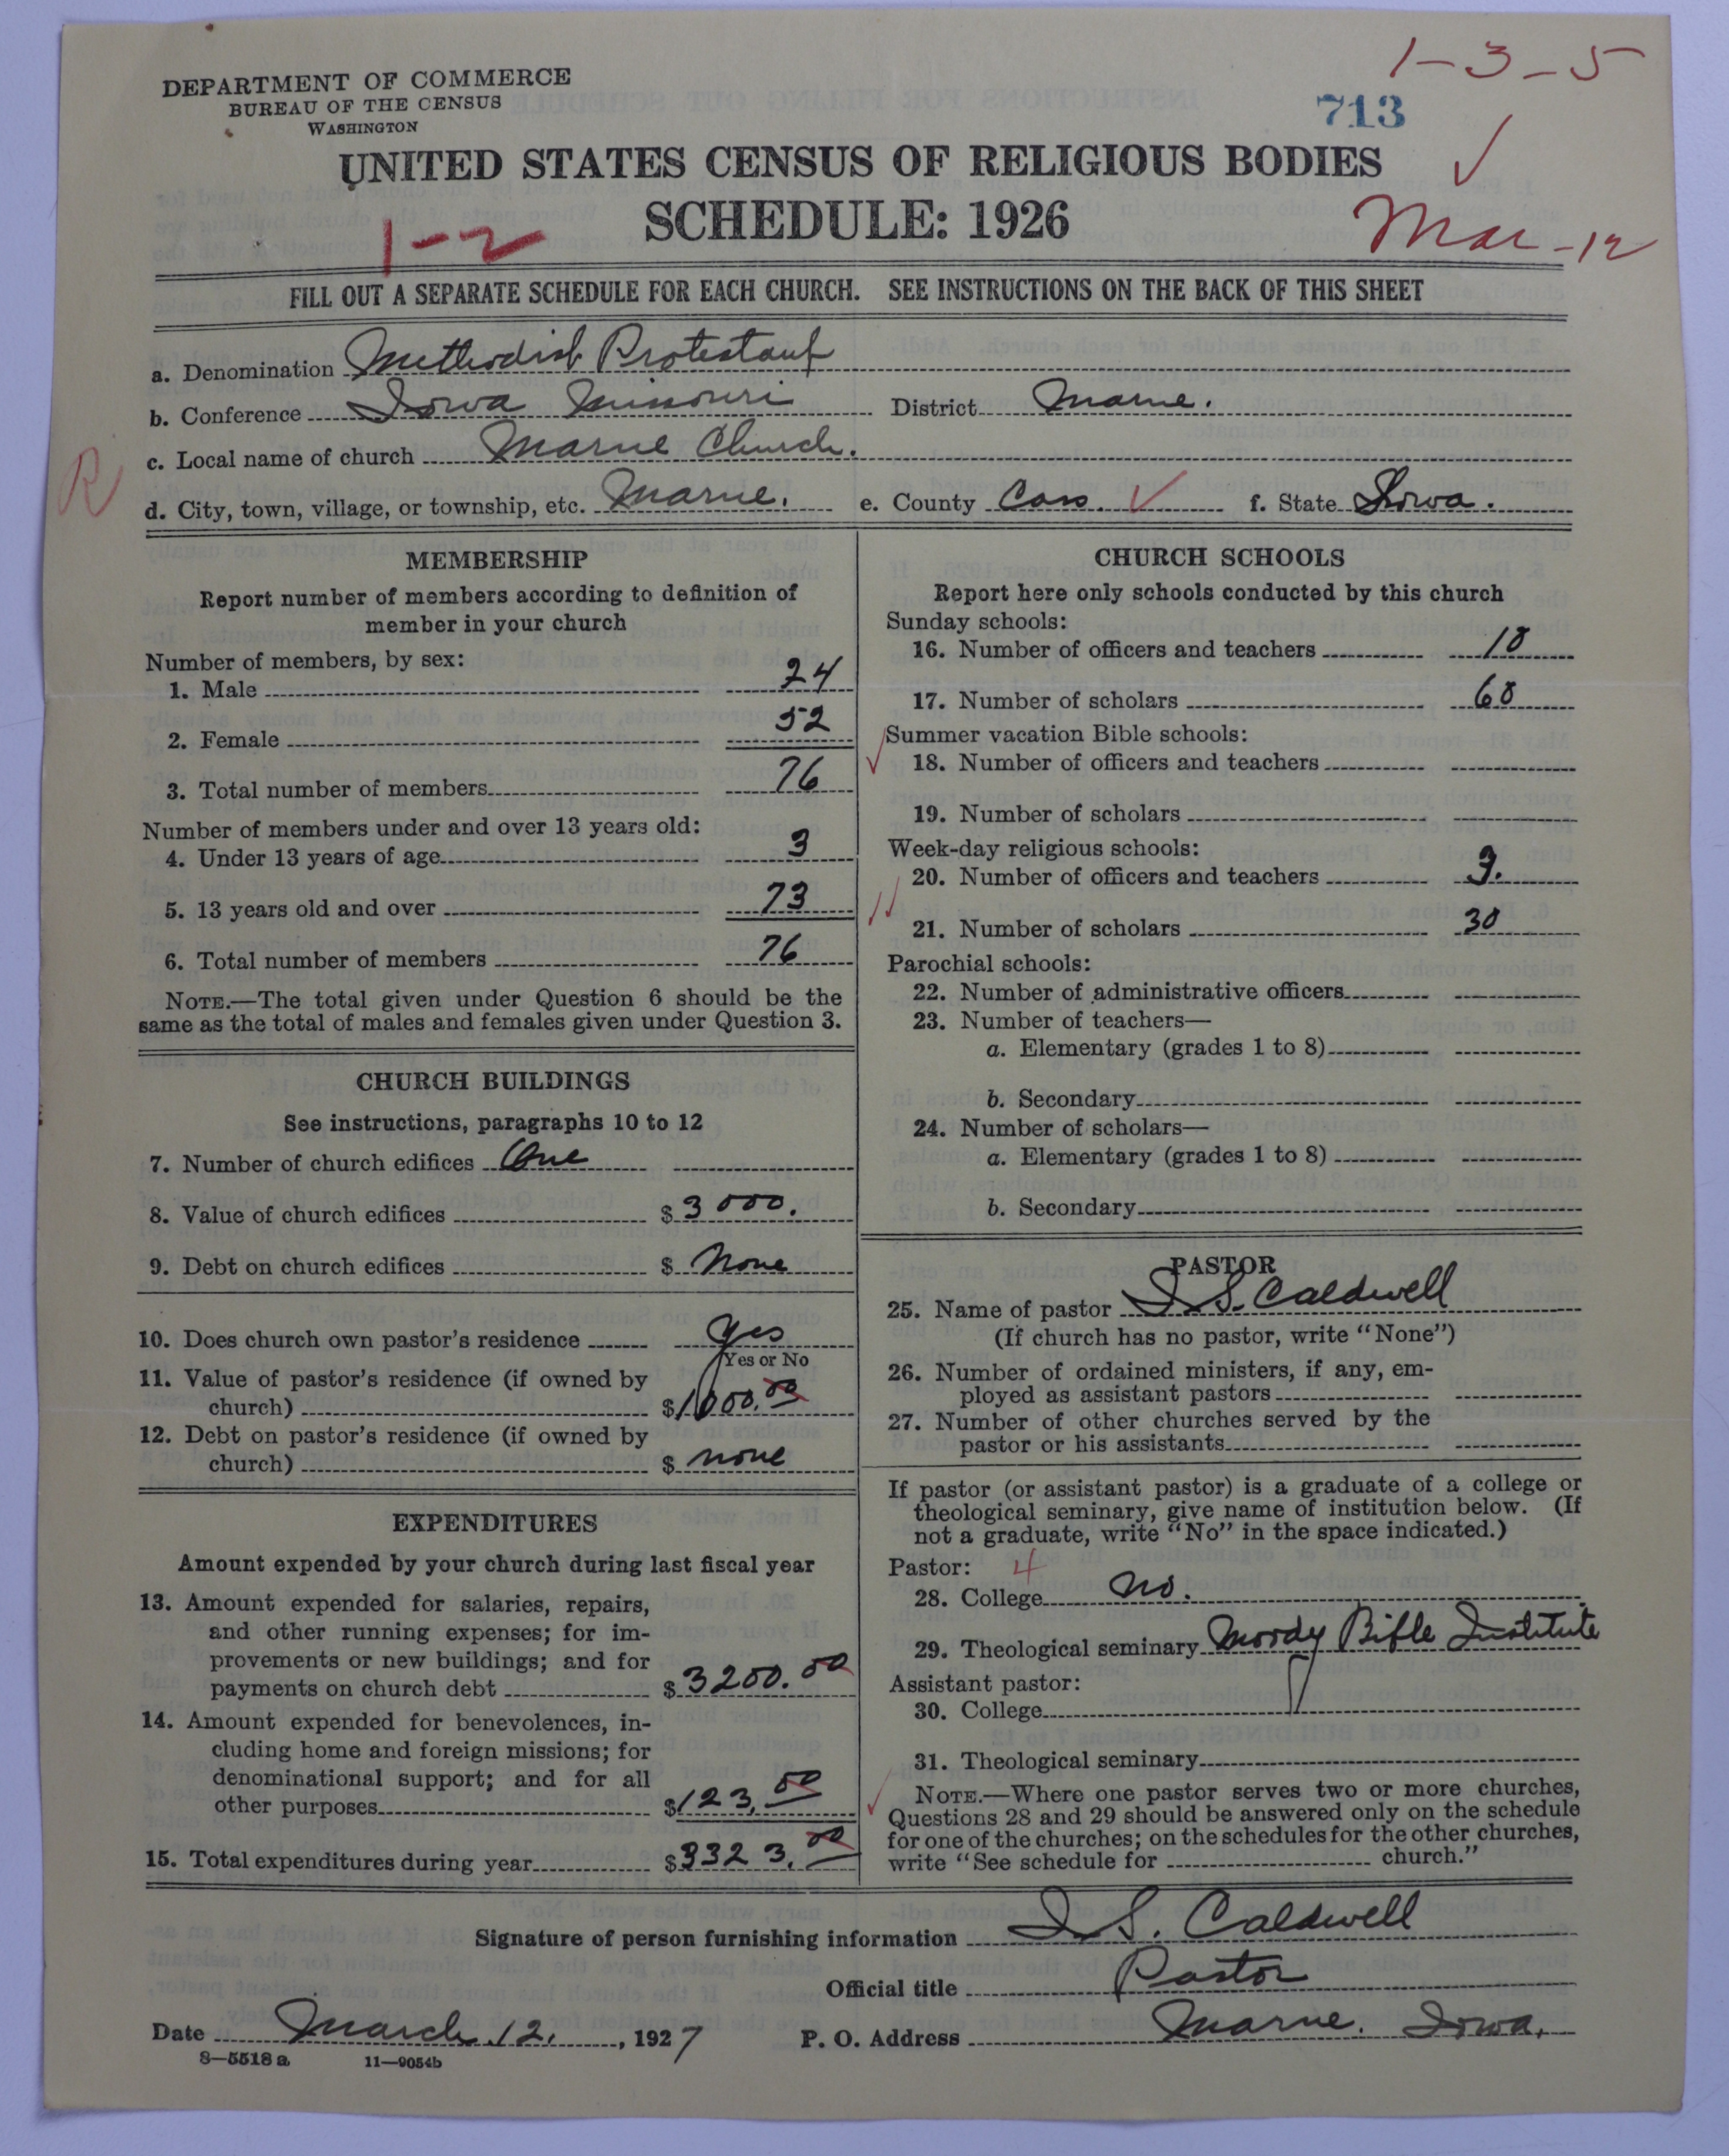 1-3-5
DEPARTMENT OF COMMERCE
BUREAU OF THE CENSUS
WASHINGTON
713
UNITED STATES CENSUS OF RELIGIOUS BODIES
SCHEDULE: 1926
1-2
Mar-12
FILL OUT A SEPARATE SCHEDULE FOR EACH CHURCH. SEE INSTRUCTIONS ON THE BACK OF THIS SHEET
a. Denomination Methodist Protestant
b. Conference Iowa Missouri District Marne.
c. Local name of church Marne Church.
R
d. City, town, village, or township, etc. Marne. e. County Cass. f. State Iowa.
MEMBERSHIP
Report number of members according to definition of
member in your church
Number of members, by sex:
1. Male 24
2. Female 52
3. Total number of members 76
Number of members under and over 13 years old:
4. Under 13 years of age 3
5. 13 years old and over 73
6. Total number of members 76
NOTE.—The total given under Question 6 should be the
same as the total of males and females given under Question 3.
CHURCH BUILDINGS
See instructions, paragraphs 10 to 12
7. Number of church edifices One
8. Value of church edifices $ 3000.
9. Debt on church edifices $ None
10. Does church own pastor's residence Yes
Yes or No
11. Value of pastor's residence (if owned by
church) $ 1000.00
12. Debt on pastor's residence (if owned by
church) $ none
EXPENDITURES
Amount expended by your church during last fiscal year
13. Amount expended for salaries, repairs,
and other running expenses; for im-
provements or new buildings; and for
payments on church debt $ 3200.00
14. Amount expended for benevolences, in-
cluding home and foreign missions; for
denominational support; and for all
other purposes $ 123.00
15. Total expenditures during year $ 3323.00
CHURCH SCHOOLS
Report here only schools conducted by this church
Sunday schools:
16. Number of officers and teachers 10
17. Number of scholars 60
Summer vacation Bible schools:
18. Number of officers and teachers
19. Number of scholars
Week-day religious schools:
20. Number of officers and teachers 3.
21. Number of scholars 30
Parochial schools:
22. Number of administrative officers
23. Number of teachers—
a. Elementary (grades 1 to 8)
b. Secondary
24. Number of scholars—
a. Elementary (grades 1 to 8)
b. Secondary
PASTOR
25. Name of pastor I S. Caldwell
(If church has no pastor, write "None")
26. Number of ordained ministers, if any, em-
ployed as assistant pastors
27. Number of other churches served by the
pastor or his assistants
If pastor (or assistant pastor) is a graduate of a college or
theological seminary, give name of institution below. (If
not a graduate, write "No" in the space indicated.)
Pastor: 4
28. College No.
29. Theological seminary Moody Bible Institute
Assistant pastor:
30. College
31. Theological seminary
NOTE.—Where one pastor serves two or more churches,
Questions 28 and 29 should be answered only on the schedule
for one of the churches; on the schedules for the other churches,
write "See schedule for church."
Signature of person furnishing information I S. Caldwell
Official title Pastor
Date March 12, 1927 P. O. Address Marne. Iowa.
8—5518 a 11—9054b